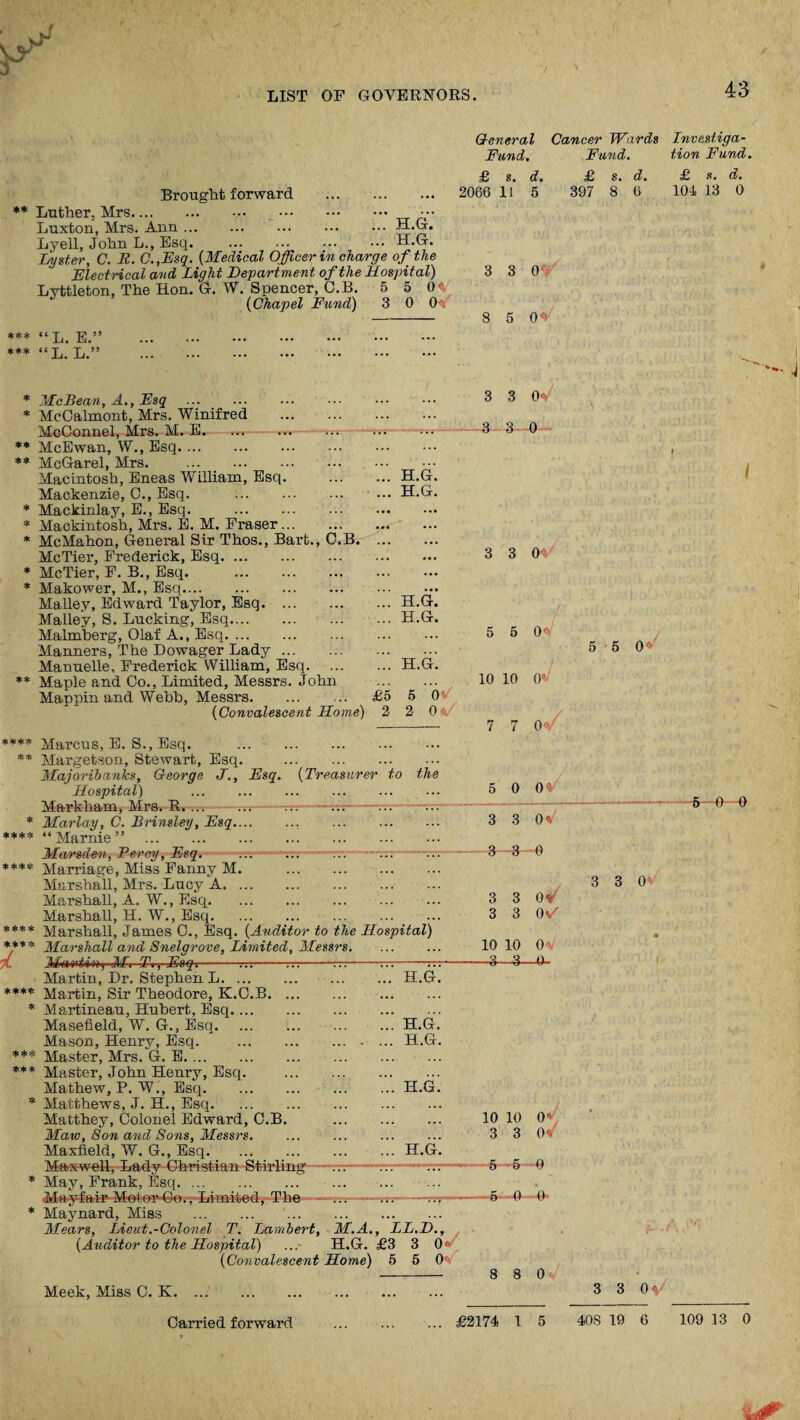 LIST OF GOVERNORS.
43
General Fund. Cancer Wards Fund. Investigation Fund.
£ s. d. £ s. d. £ s. d.
Brought forward ... ... ... 2066 11 5 397 8 6 104 13 0
** Luther, Mrs.... ... ... ... ... ... ... ...
Luxton, Mrs. Ann ... ... ... ... ... H.G.
Lyell, John L., Esq. ... ... ... ... H.G.
Lyster, C. R. C., Esq. (Medical Officer in charge of the
Electrical and Light Department of the Hospital) 3 3 0
Lyttleton, The Hon. G. W. Spencer, C.B. 5 5 0
(Chapel Fund) 3 0 0
8 5 0
*** “L. E.” ... ... ... ... ... ... ...
*** “L. L.” ... ... ... ... ... ... ...
* McBean, A., Esq ... ... ... ... ... ... 3 3 0
* McCalmont, Mrs. Winifred ... ... ... ...
McConnel, Mrs. M. E. ... ... ... ... ... 3 3 0
** McEwan, W., Esq. ... ... ... ... ... ...
** McGarel, Mrs. ... ... ... ... ... ...
Macintosh, Eneas William, Esq. ... ... H.G.
Mackenzie, C., Esq. ... ... ... ... H.G.
* Mackinlay, E., Esq. ... ... ... ... ...
* Mackintosh, Mrs. E. M. Fraser ... ... ... ...
* McMahon, General Sir Thos., Bart., C.B. ... ...
McTier, Frederick, Esq. ... ... ... ... ... 3 3 0
* McTier, F. B., Esq. ... ... ... ... ...
* Makower, M., Esq.... ... ... ... ... ...
Malley, Edward Taylor, Esq. ... ... ... H.G.
Malley, S. Lucking, Esq.... ... ... ... H.G.
Malmberg, Olaf A., Esq. ... ... ... ... ... 5 5 0
Manners, The Dowager Lady ... ... ... ... 5 5 0
Manuelle, Frederick William, Esq. ... ... H.G.
** Maple and Co., Limited, Messrs. John ... ... 10 10 0
Mappin and Webb, Messrs. ... ... £5 5 0
(Convalescent Home) 2 2 0
7 7 0
**** Marcus, E. S., Esq. ... ... ... ... ...
** Margetson, Stewart, Esq. ... ... ... ...
Majoribanks, George J., Esq. (Treasurer to the
Hospital) ... ... ... ... ... ... 5 0 0
Markham, Mrs. R. ... ... ... ... ... ... 5 0 0
* Marlay, C. Brinsley, Esq.... ... ... ... ... 3 3 0
**** “Marnie” ... ... ... ... ... ... ...
Marsden, Percy, Esq. ... ... ... ... ... 3 3 0
**** Marriage, Miss Fanny M. ... ... ... ...
Marshall, Mrs. Lucy A. ... ... ... ... ... 3 3 0
Marshall, A. W., Esq. ... ... ... ... ... 3 3 0
Marshall, H. W., Esq. ... ... ... ... ... 3 3 0
**** Marshall, James C., Esq. (Auditor to the Hospital)
**** Marshall and Snelgrove, Limited, Messrs. ... ... 10 10 0
Martin, M. T., Esq. ... ... ... ... ... 3 3 0
Martin, Dr. Stephen L. ... ... ... ... H.G.
**** Martin, Sir Theodore, K.C.B. ... ... ... ...
* Martineau, Hubert, Esq. ... ... ... ... ...
Masefield, W. G., Esq. ... ... ... ... H.G.
Mason, Henry, Esq. ... ... ... ... H.G.
*** Master, Mrs. G. E. ... ... ... ... ... ...
*** Master, John Henry, Esq. ... ... ... ...
Mathew, P. W., Esq. ... ... ... ... H.G.
* Matthews, J. H., Esq. ... ... ... ... ...
Matthey, Colonel Edward, C.B. ... ... ... 10 10 0
Maw, Son and Sons, Messrs. ... ... ... ... 3 3 0
Maxfield, W. G., Esq. ... ... ... ... H.G.
Maxwell, Lady Christian Stirling ... ... ... 5 5 0
* May, Frank, Esq. ... ... ... ... ... ...
Mayfair Motor Co., Limited, The ... ... ... 5 0 0
* Maynard, Miss ... ... ... ... ... ...
Mears, Lieut.-Colonel T. Lambert, M.A., LL.D.,
(Auditor to the Hospital) ... H.G. £3 3 0
(Convalescent Home) 5 5 0
8 8 0
Meek, Miss C. K. ... ... ... ... ... ... 3 3 0
Carried forward ... ... ... £2174 1 5 408 19 6 109 13 0